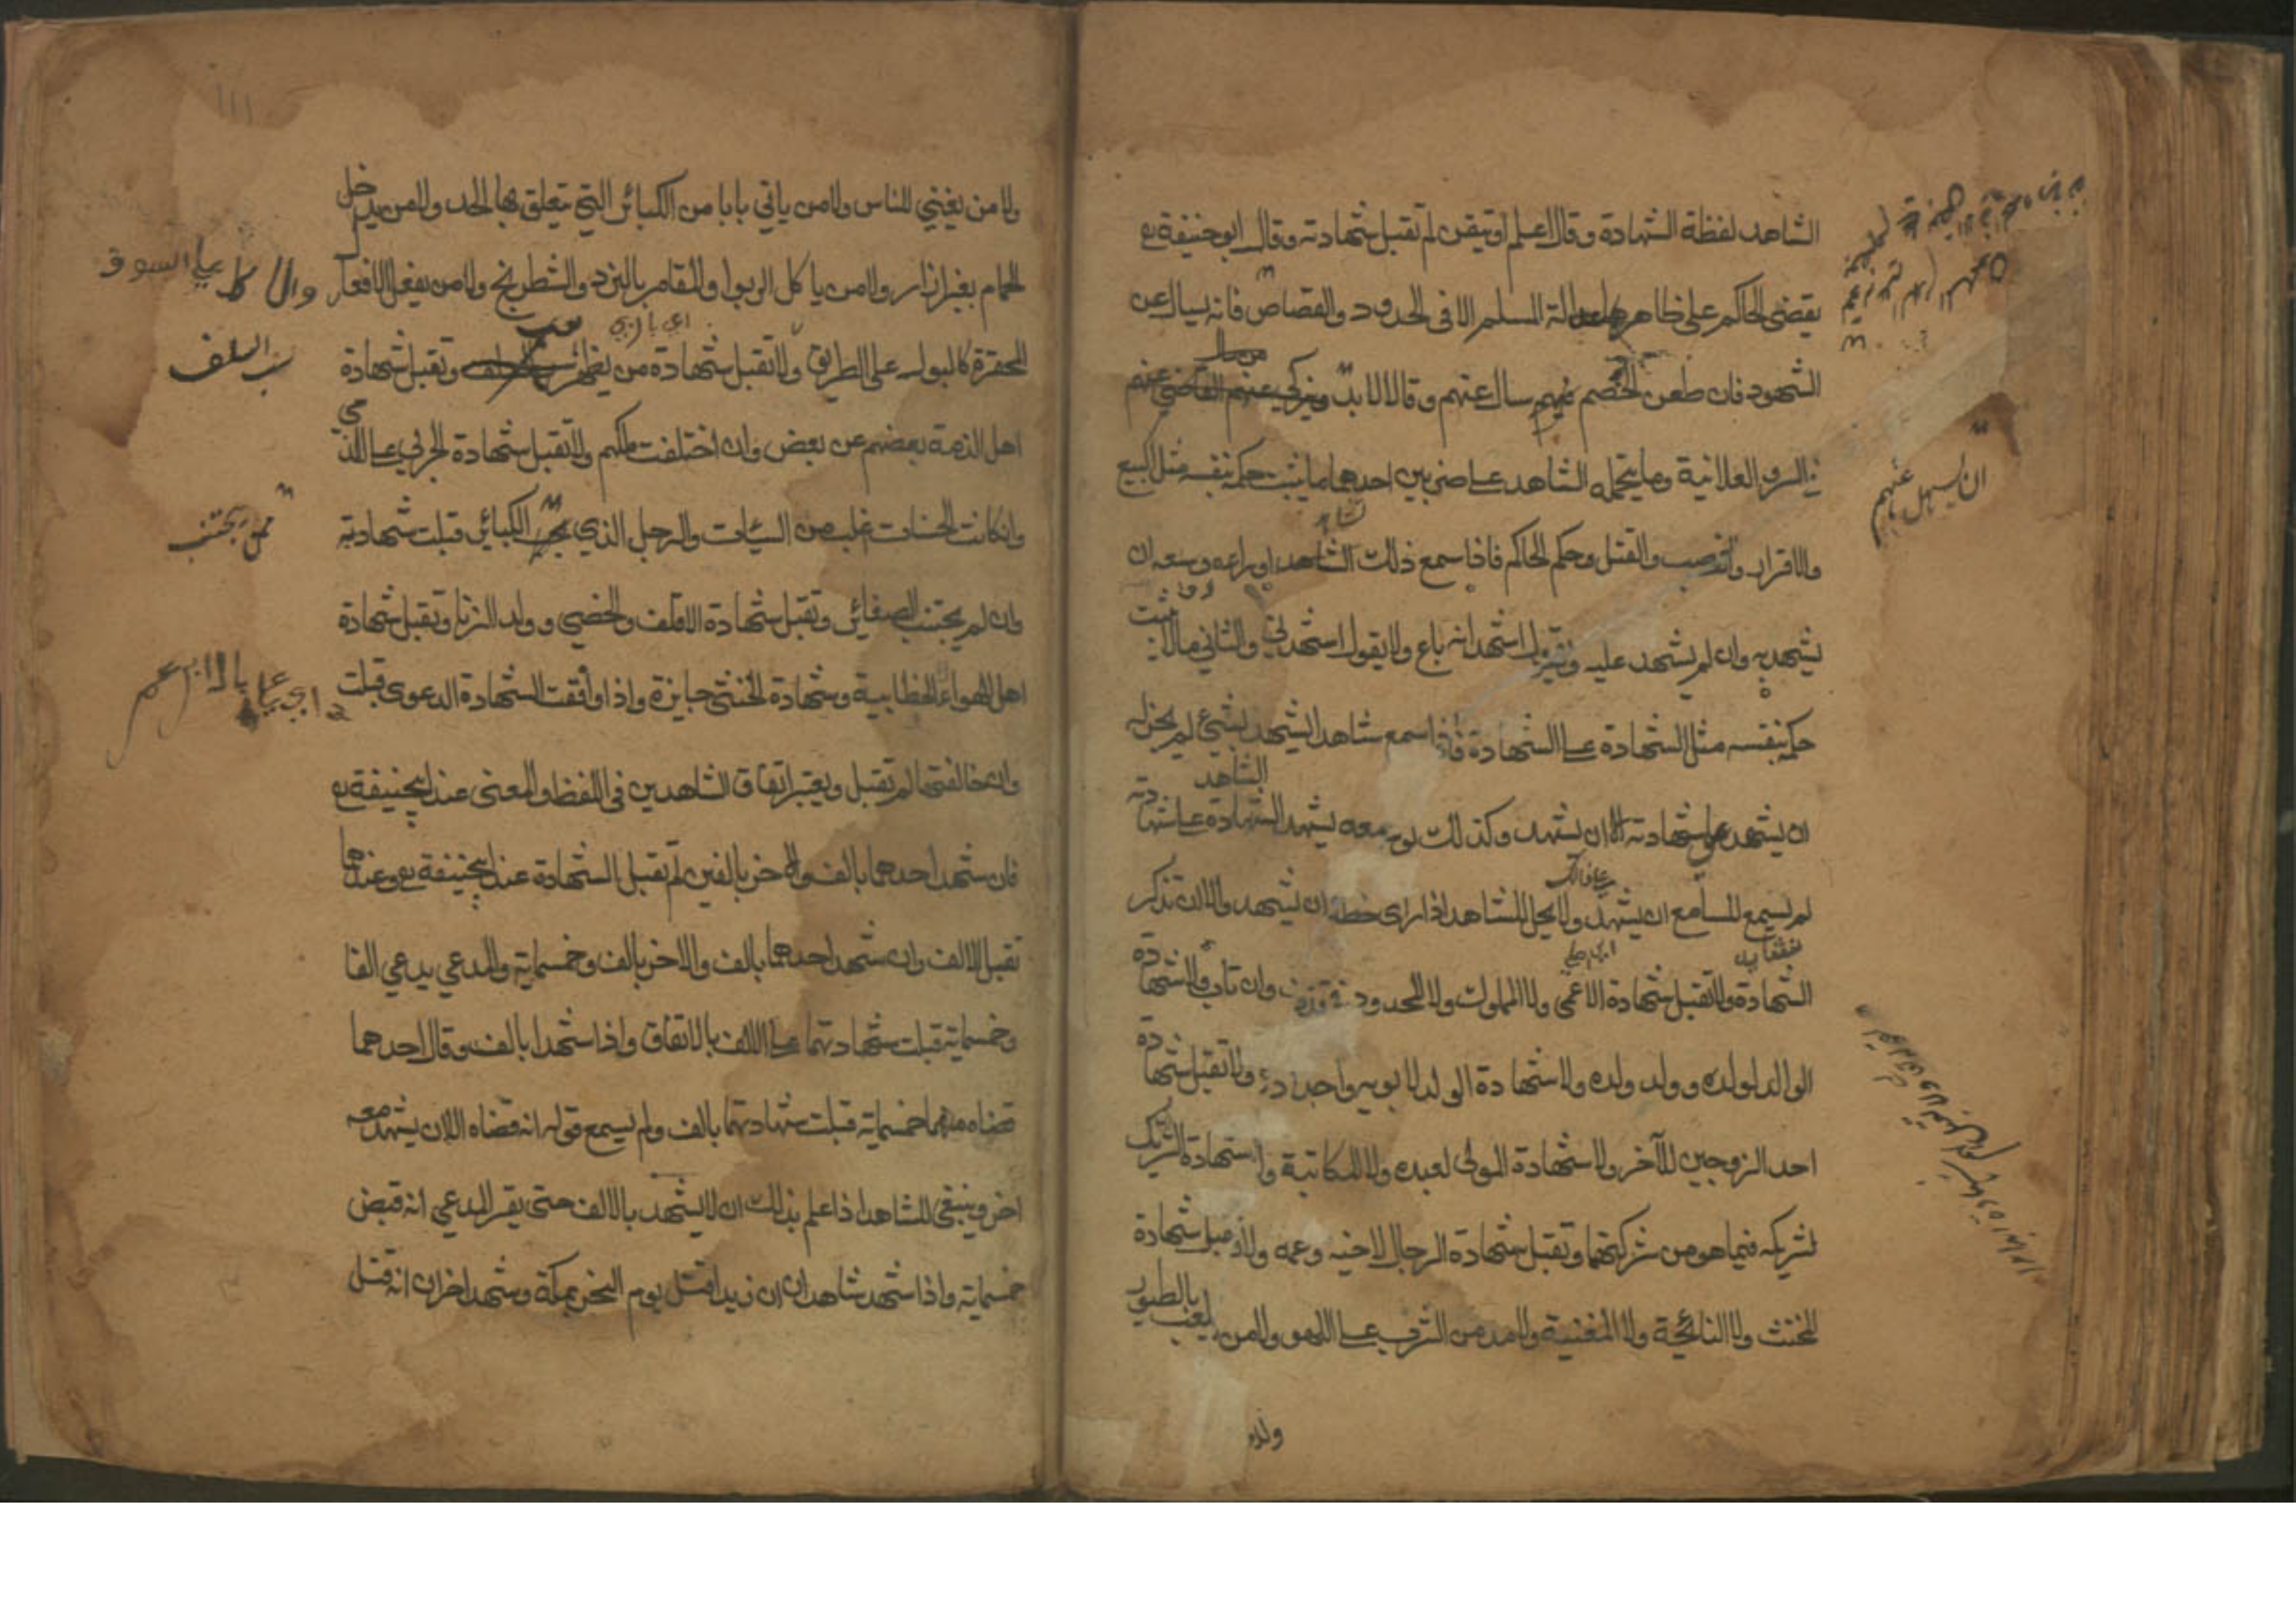 الشاهد لفظة الشهادة وقال اعلم او تيقن لم تقبل شهادته وقال ابو حنيفة رع
يقضى الحاكم على ظاهر عدالة المسلم الا فى الحدود والقصاص فانه يسال عن
الشهود فان طعن الخصم فيهم سال عنهم وقالا لابد
في السر والعلانية وما يتحمله الشاهد على ضربين احدهما ما يثبت حكمه بنفسه مثل البيع
والاقرار والغصب والقتل وحكم الحاكم فاذا سمع ذلك الشاهد او راءه وسعه ان
يشهد به وان لم يشهد عليه ويقول اشهد انه باع ولا يقول اشهدني والثاني مالا يثبت
حكمه بنفسه مثل الشهادة على الشهادة فاذا سمع شاهدا يشهد بشئ لم يجز له
ان يشهد على شهادته الا ان يشهد وكذلك لو سمعه يشهد الشاهد على شهادته
لم يسمع للسامع ان يشهد ولا يحل للشاهد اذا راى خطه ان يشهد والا ان تذكر
الشهادة ولا تقبل شهادة الاعمى ولا المملوك ولا المحدود في قذف وان تاب ولا شهادة
الوالد لولده وولد ولده ولا شهادة الولد لابويه واجداده ولا تقبل شهادة
احد الزوجين للآخر ولا شهادة المولى لعبده ولا لمكاتبة ولا شهادة الشريك
لشريكه فيما هو من شركتهما وتقبل شهادة الرجل لاخيه وعمه ولا تقبل شهادة
المخنث ولا النائحة ولا المغنية ولا مدمن الشرب على اللهو ولا من يلعب بالطيور
ان يسئل عنهم
ولا من يغني للناس ولا من ياتي بابا من الكبائر التي يتعلق بها الحد ولا من يدخل
الحمام بغير ازار ولا من ياكل الربوا والمقامر بالنرد والشطرنج ولا من يفعل الافعال
المحقرة كالبول على الطريق ولا تقبل شهادة من يظهر وتقبل شهادة
اهل الذمة بعضهم عن بعض وان اختلفت ملكهم ولا تقبل شهادة الحربي على الذمى
وان كانت الحسنات غلب من السيئات والرجل الذي يجتنب الكبائر قبلت شهادته
وان لم يجتنب الصغائر وتقبل شهادة الاقلف والخصي وولد الزنا وتقبل شهادة
اهل الهواء الخطابية وشهادة الخنثى جايزة واذا وافقت الشهادة الدعوى قبلت
وان خالفتها لم تقبل ويعتبر اتفاق الشاهدين فى اللفظ والمعنى عند ابيحنيفة رع
فان شهد احدهما بالف والاخر بالفين لم تقبل الشهادة عند ابيحنيفة رع وعندهما
تقبل الالف وان شهد احدهما بالف والاخر بالف وخمسماية والمدعي يدعي الفا
وخمسماية قبلت شهادتهما على الالف بالاتفاق واذا شهدا بالف وقال احدهما
قضاه منهما خمسماية قبلت شهادتهما بالف ولم يسمع قوله انه قضاه الا ان يشهد معه
اخر وينبغى للشاهد اذا علم بذلك ان لا يشهد بالالف حتى يقر المدعي انه قبض
خمسماية واذا شهد شاهدان ان زيدا قتل يوم النحر بمكة وشهد اخران انه قتل
والاكل على السوق
سب السلف
ممن يجتنب